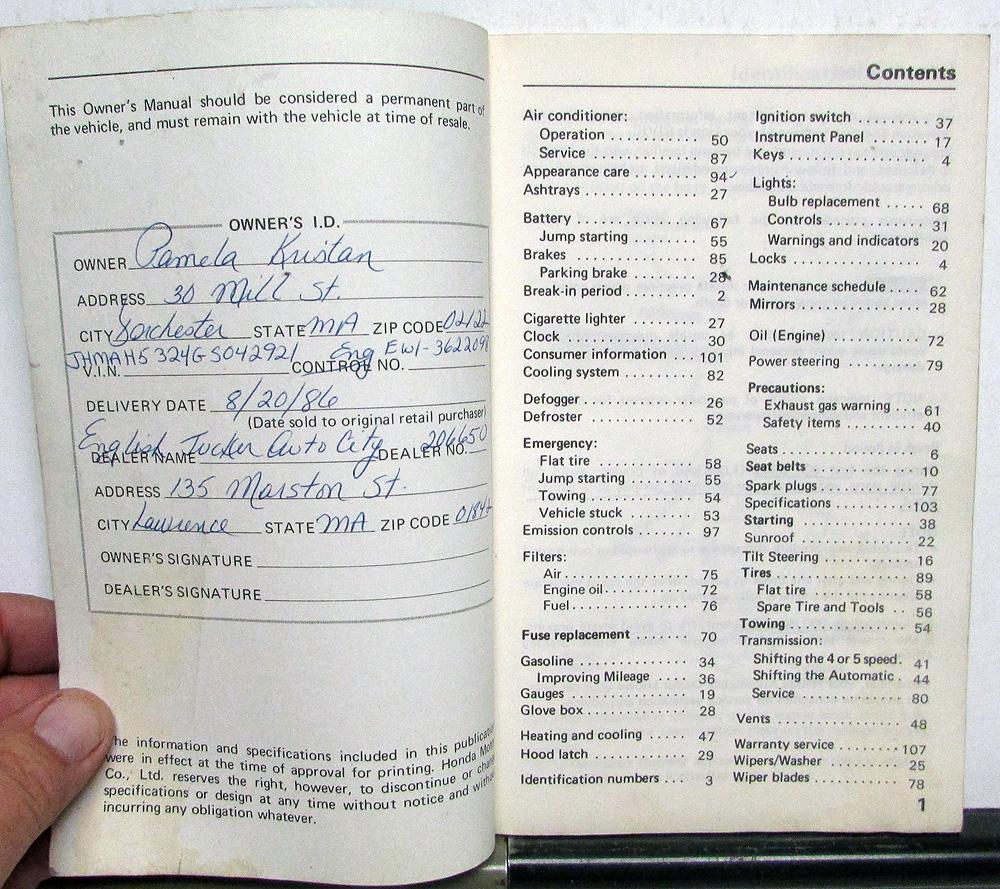 This Owner's Manual should be considered a permanent part of
the vehicle, and must remain with the vehicle at time of resale.
OWNER'S I.D.
OWNER Pamela Kristan
ADDRESS 30 Mill St.
CITY Dorchester STATE MA ZIP CODE 02122
JHMAH5324GS042921 Eng EW1-3622098
V.I.N. CONTROL NO.
DELIVERY DATE 8/20/86
(Date sold to original retail purchaser)
English Tucker Auto City 206650
DEALER NAME DEALER NO.
ADDRESS 135 Marston St.
CITY Lawrence STATE MA ZIP CODE 0184
OWNER'S SIGNATURE
DEALER'S SIGNATURE
The information and specifications included in this publication
were in effect at the time of approval for printing. Honda Motor
Co., Ltd. reserves the right, however, to discontinue or change
specifications or design at any time without notice and without
incurring any obligation whatever.
Contents
Air conditioner:
Operation ........ 50
Service ........ 87
Appearance care ........ 94
Ashtrays ........ 27
Battery ........ 67
Jump starting ........ 55
Brakes ........ 85
Parking brake ........ 28
Break-in period ........ 2
Cigarette lighter ........ 27
Clock ........ 30
Consumer information ..... 101
Cooling system ........ 82
Defogger ........ 26
Defroster ........ 52
Emergency:
Flat tire ........ 58
Jump starting ........ 55
Towing ........ 54
Vehicle stuck ........ 53
Emission controls ........ 97
Filters:
Air ........ 75
Engine oil ........ 72
Fuel ........ 76
Fuse replacement ....... 70
Gasoline ........ 34
Improving Mileage .... 36
Gauges ........ 19
Glove box ........ 28
Heating and cooling ...... 47
Hood latch ........ 29
Identification numbers ... 3
Ignition switch ........ 37
Instrument Panel ....... 17
Keys ........ 4
Lights:
Bulb replacement ..... 68
Controls ........ 31
Warnings and indicators 20
Locks ........ 4
Maintenance schedule .... 62
Mirrors ........ 28
Oil (Engine) ........ 72
Power steering ........ 79
Precautions:
Exhaust gas warning ... 61
Safety items ........ 40
Seats ........ 6
Seat belts ........ 10
Spark plugs ........ 77
Specifications ........ 103
Starting ........ 38
Sunroof ........ 22
Tilt Steering ........ 16
Tires ........ 89
Flat tire ........ 58
Spare Tire and Tools .. 56
Towing ........ 54
Transmission:
Shifting the 4 or 5 speed. 41
Shifting the Automatic . 44
Service ........ 80
Vents ........ 48
Warranty service ........ 107
Wipers/Washer ........ 25
Wiper blades ........ 78
1